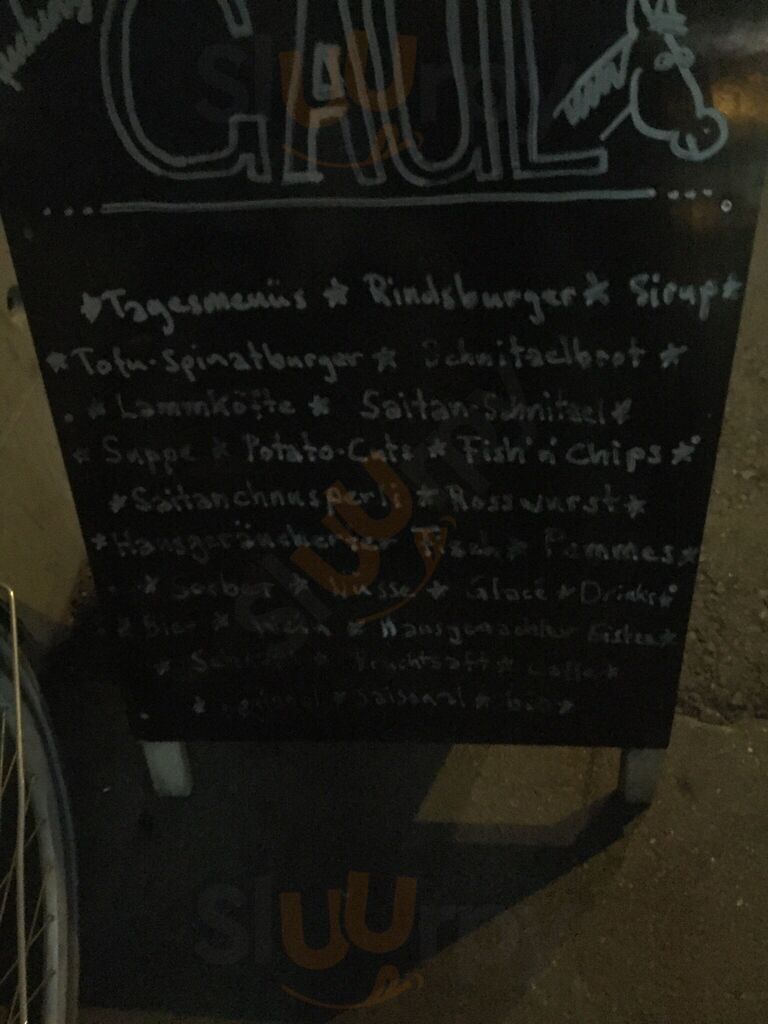 GAUL
*Tagesmenüs * Rindsburger * Sirup *
* Tofu-Spinatburger * Schnitzelbrot *
* Lammköfte * Saitan-Schnitzel *
* Suppe * Potato-Cuts * Fish'n'Chips *
* Saitanchnusperli * Rosswurst *
* Hausgeräucherter Fisch * Pommes *
* Sorbet * Nüsse * Glacé * Drinks *
* Bier * Wein * Hausgemachter Eistee *
* Fruchtsaft * Caffe *
* regional * saisonal * bio *
sluurpy
sluurpy
sluurpy